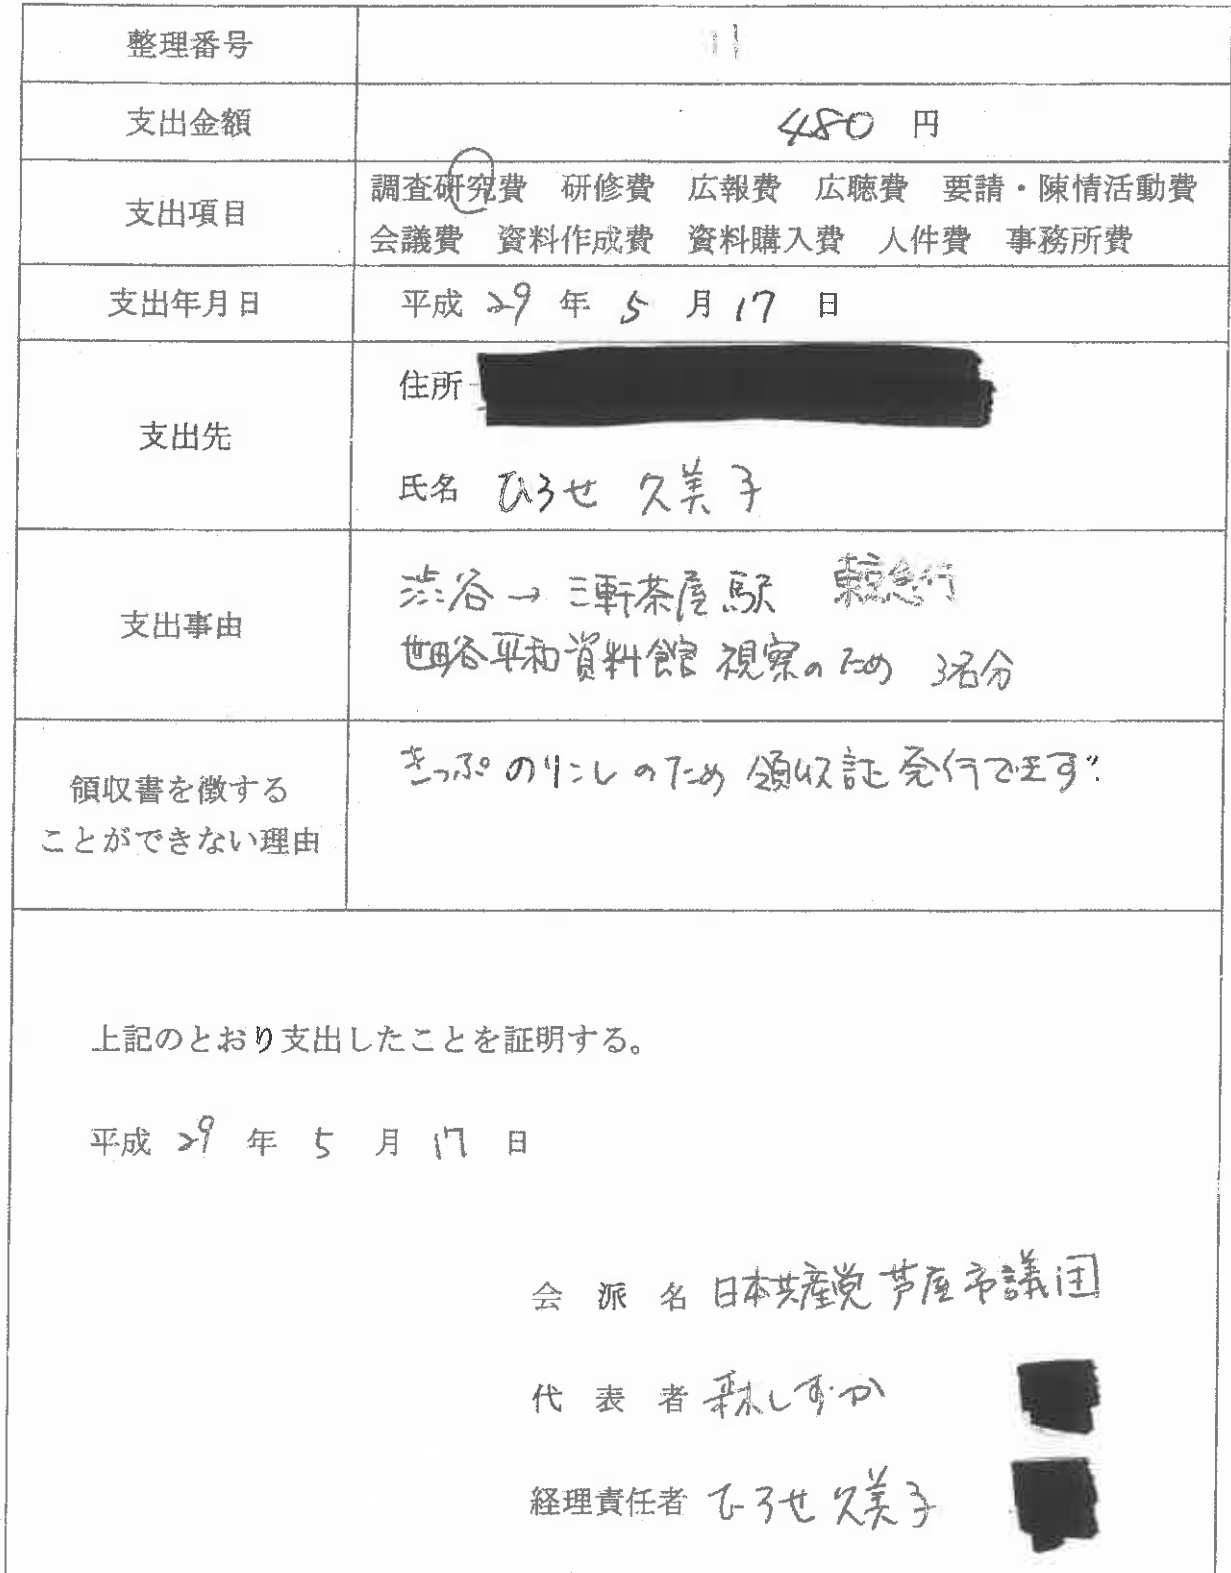 整理番号 11
支出金額 480 円
支出項目 調査研究費 研修費 広報費 広聴費 要請・陳情活動費
会議費 資料作成費 資料購入費 人件費 事務所費
支出年月日 平成 29 年 5 月 17 日
支出先 住所
氏名 ひろせ 久美子
支出事由 渋谷→三軒茶屋駅 東京急行
世田谷平和資料館 視察のため 3名分
領収書を徴する
ことができない理由
きっぷ のりこしのため 領収証 発行できず
上記のとおり支出したことを証明する。
平成 29 年 5 月 17 日
会派名 日本共産党 芦屋市議団
代表者 森しずか
経理責任者 ひろせ 久美子